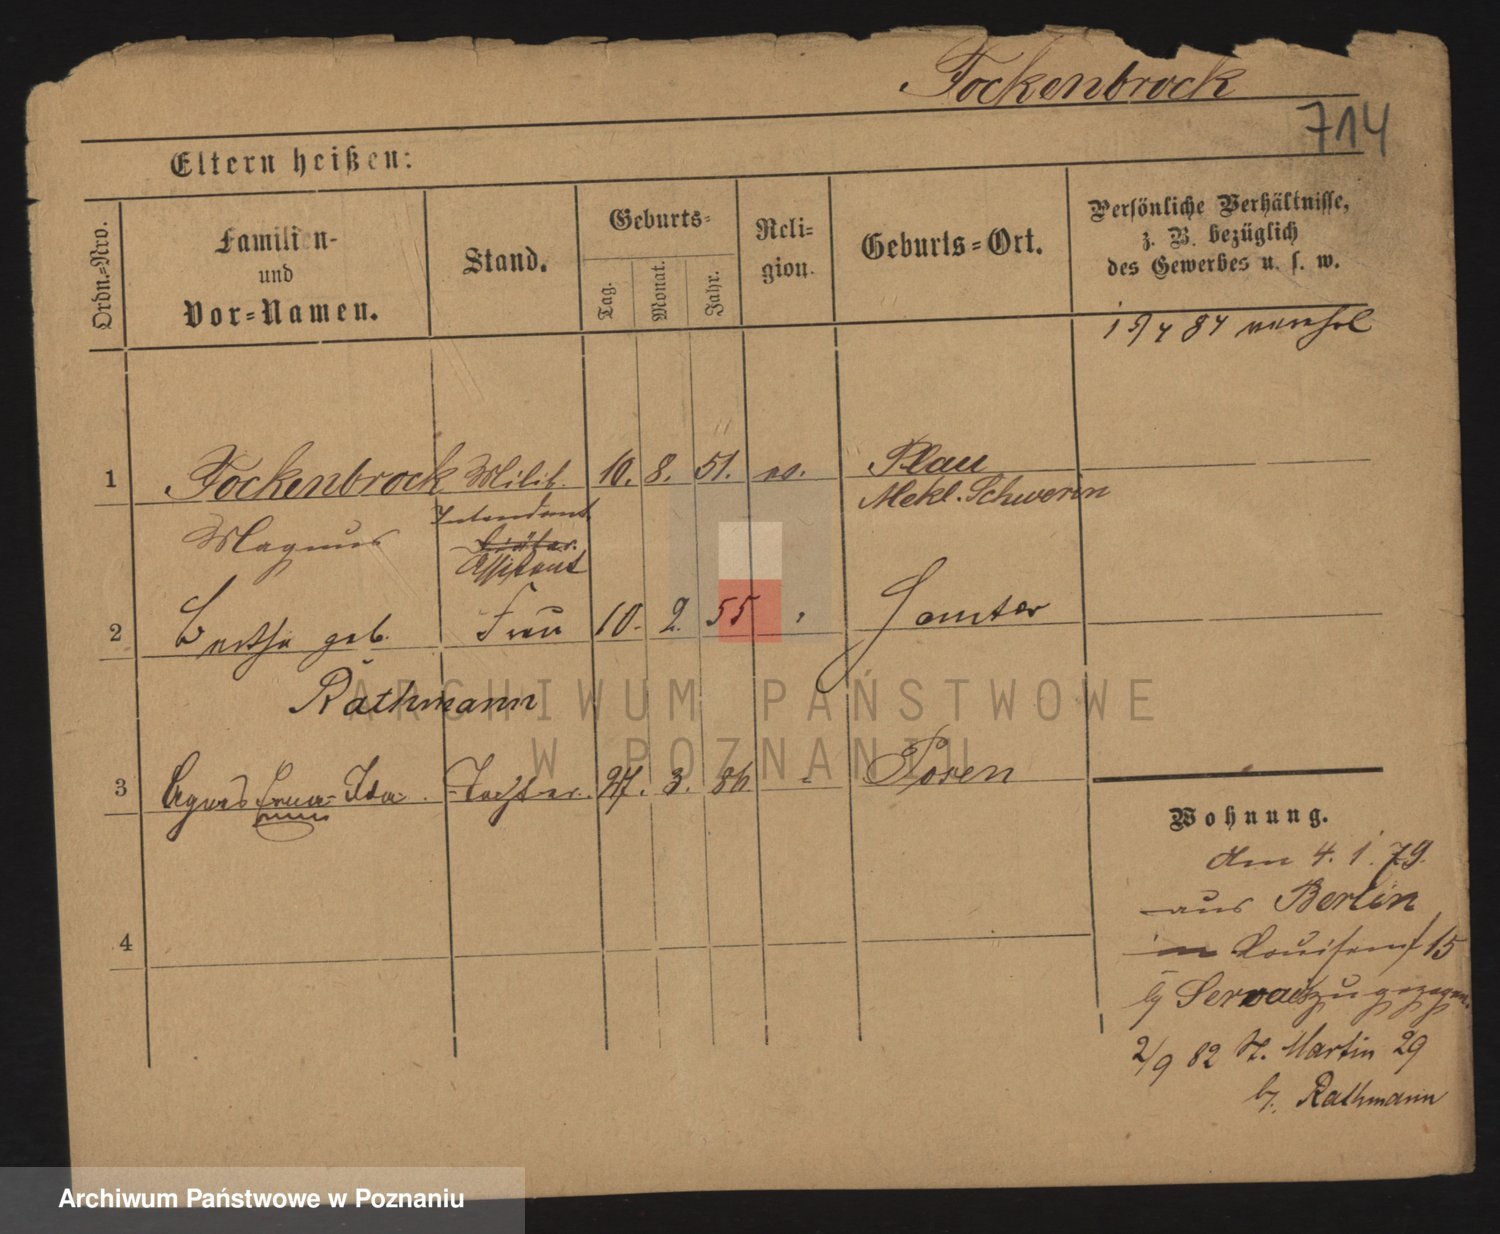 Fockenbrock
714
Eltern heißen:
Ordn.=Nro.
Familien-
und
Vor=Namen.
Stand.
Geburts=
Tag.
Monat.
Jahr.
Reli=
gion.
Geburts=Ort.
Persönliche Verhältnisse,
z. B. bezüglich
des Gewerbes u. s. w.
84
1 Fockenbrock Milit. 10. 8. 51. ev. Plau
Mekl. Schwerin
Magnus
Intendant.
Assistent
2 Bertha geb. Frau 10. 2. 55 Samter
Rathmann
3 Agnes Ida. Tochter. 27. 3. 86 Posen
4
Wohnung.
den 4. 1. 79.
aus Berlin
Louisenst 15
b/ Servais zugezogen.
2/9 82 St. Martin 29
b/. Rathmann
ARCHIWUM PAŃSTWOWE
W POZNANIU
Archiwum Państwowe w Poznaniu